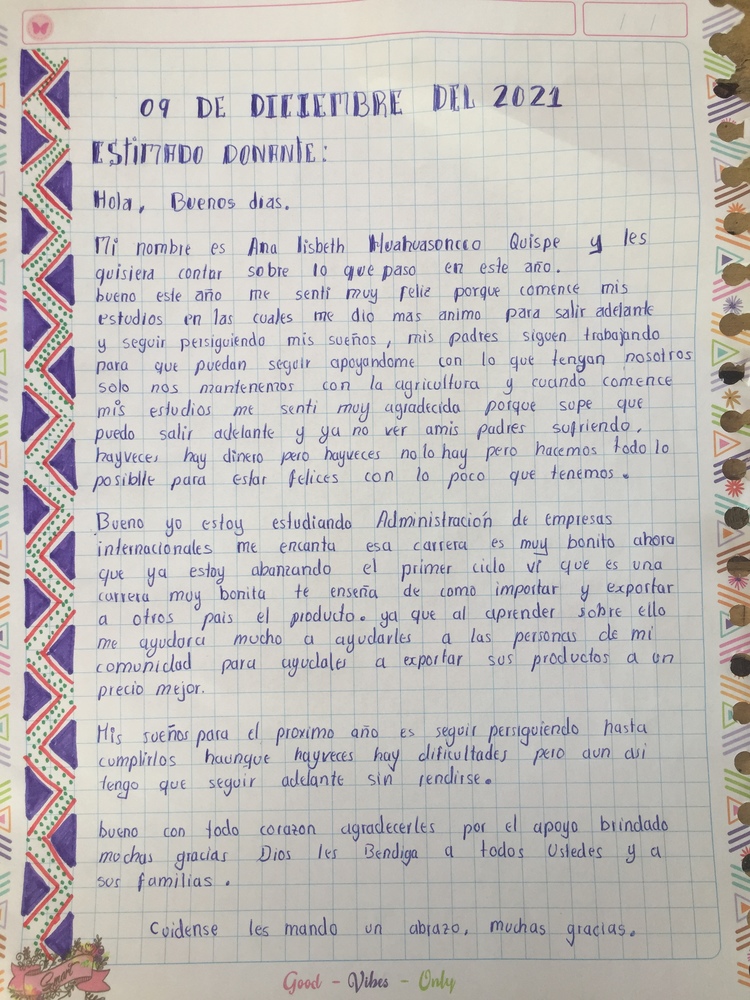 09 DE DICIEMBRE DEL 2021
EStiMADO DONANtE:
Hola, Buenos dias.
Mi nombre es Ana lisbeth Huahuasoncco Quispe y les
quisiera contar sobre lo que paso en este año.
bueno este año me senti muy feliz porque comence mis
estudios en las cuales me dio mas animo para salir adelante
y seguir persiguiendo mis sueños, mis padres siguen trabajando
para que puedan seguir apoyandome con lo que tengan nosotros
solo nos mantenemos con la agricultura y cuando comence
mis estudios me senti muy agradecida porque supe que
puedo salir adelante y ya no ver amis padres sufriendo,
hayveces hay dinero pero hayveces no lo hay pero hacemos todo lo
posiblle para estar felices con lo poco que tenemos.
Bueno yo estoy estudiando Administración de empresas
internacionales me encanta esa carrera es muy bonito ahora
que ya estoy abanzando el primer ciclo vi que es una
carrera muy bonita te enseña de como importar y exportar
a otros pais el producto. ya que al aprender sobre ello
me ayudara mucho a ayudarles a las personas de mi
comunidad para ayudales a exportar sus productos a un
precio mejor.
Mis sueños para el proximo año es seguir persiguiendo hasta
cumplirlos haunque hayveces hay dificultades pero aun asi
tengo que seguir adelante sin rendirse.
bueno con todo corazon agradecerles por el apoyo brindado
muchas gracias Dios les Bendiga a todos Ustedes y a
sus familias.
Cuidense les mando un abrazo, muchas gracias.
Smart
Good - Vibes - Only